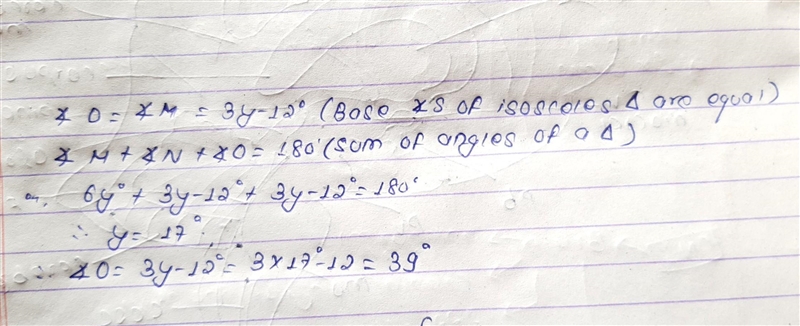 ∡ O = ∡ M = 3y-12° (Base ∡s of isosceles Δ are equal)
∡ M + ∡N + ∡O = 180° (Sum of angles of a Δ)
or, 6y° + 3y-12° + 3y-12° = 180°
∴ y = 17°
∴ ∡O = 3y-12° = 3×17°-12 = 39°